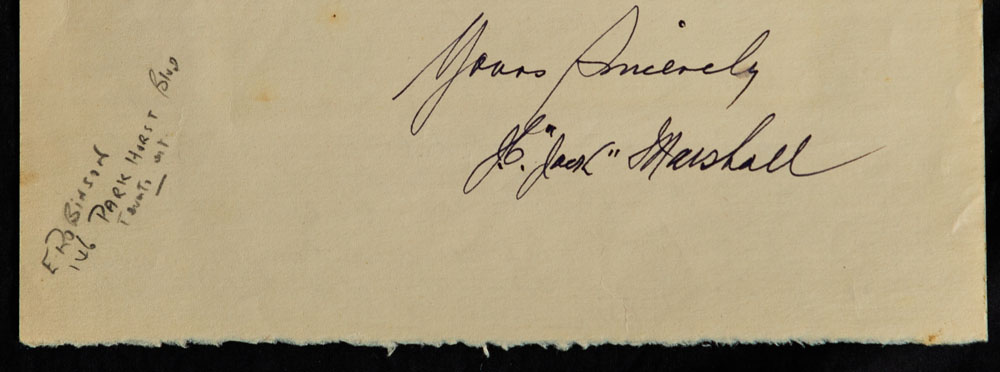 Yours Sincerely
J.C. "Jack" Marshall
E ROBINSON
146 PARKHORST Blvd
Toronto Ont